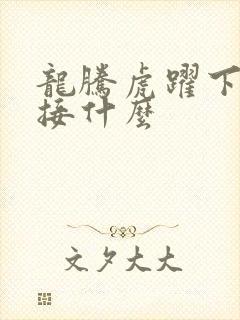 龍騰虎躍下
接什麼
文夕大大